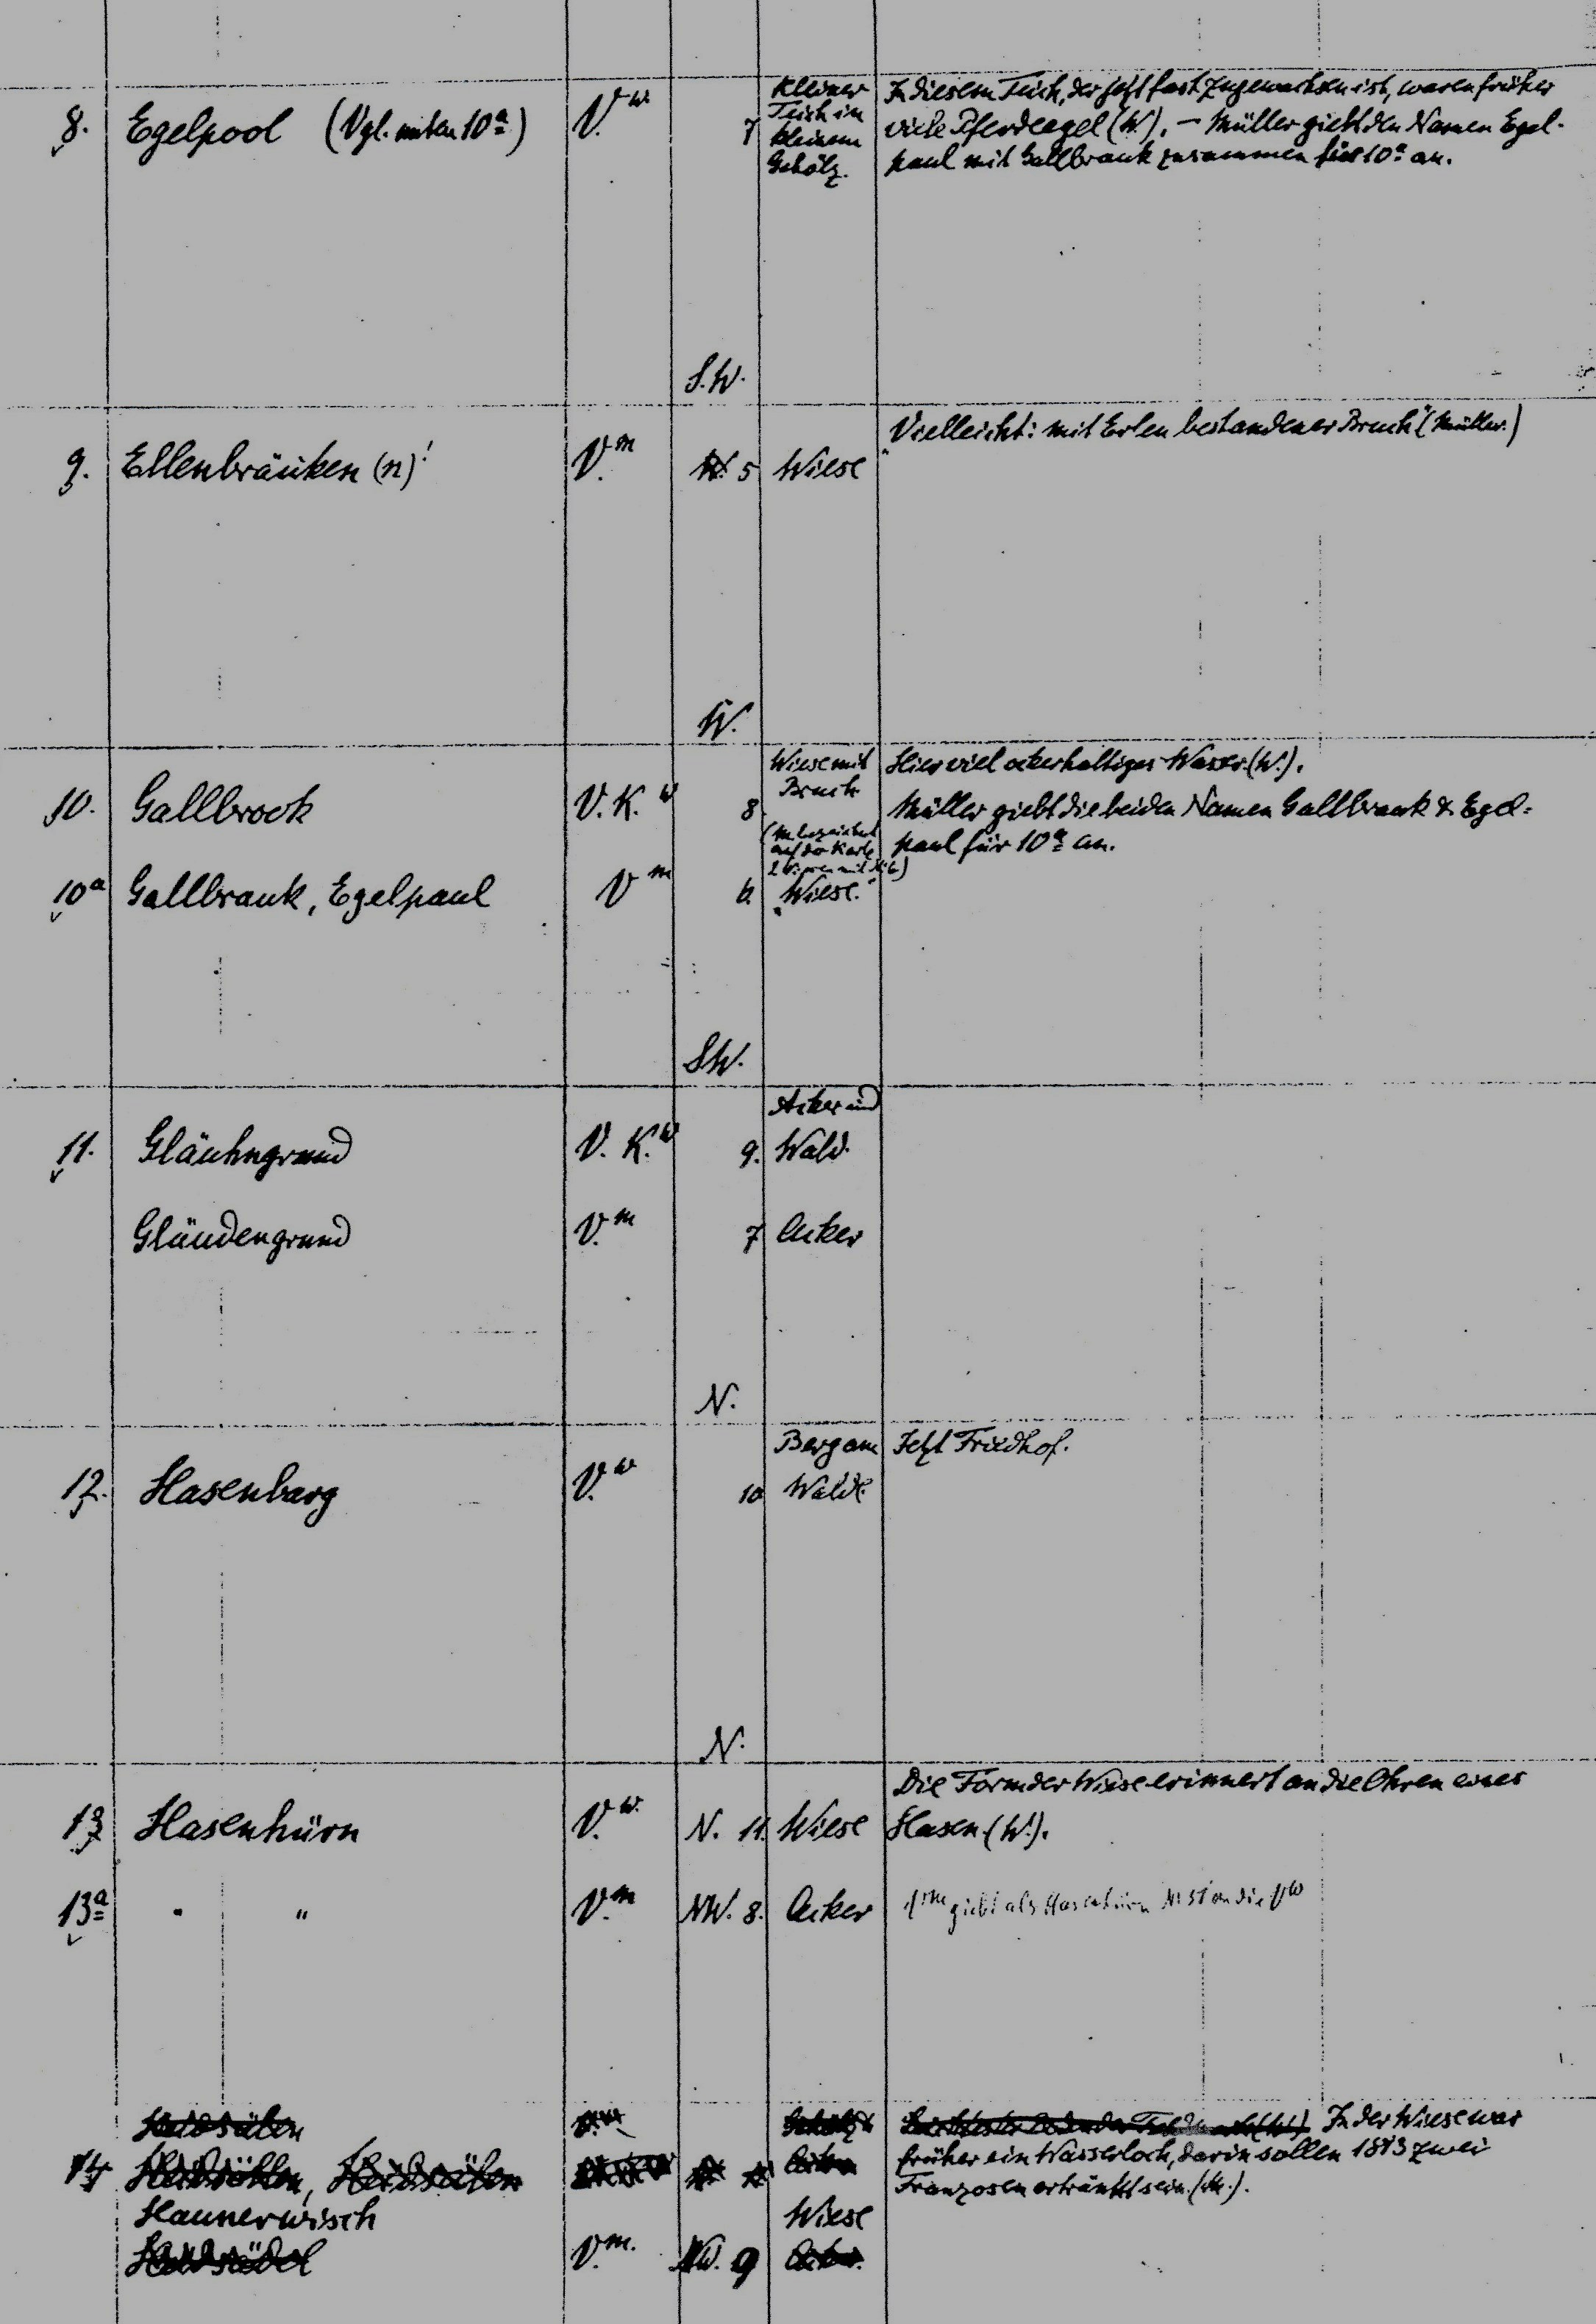 8. Egelpool (Vgl. unten 10a) V.w 7 Kleiner Teich in kleinem Gehölz.
In diesem Teich, der jetzt fast zugewachsen ist, waren früher
viele Pferdeegel (W.). – Müller giebt den Namen Egel-
paul mit Gallbrauk zusammen für 10a an.
S.W.
9. Ellenbräuken (n)! V.m 5 Wiese
„Vielleicht: mit Erlen bestandener Bruch" (Müller.)
W.
10. Gallbrook V.K.w 8 Wiese mit Bruch
Hier viel ockerhaltiges Wasser (W.).
Müller giebt die beiden Namen Gallbrauk & Egel-
paul für 10a an.
(M. bezeichnet
auf der Karte
10a Gallbrauk, Egelpaul V m 6. „Wiese."
S.W.
11. Gläuhngrund V. K.w 9. Acker und Wald.
Gläudengrund V.m 7 Acker
N.
12. Hasenbarg V.w 10 Berg am Walde.
Jetzt Friedhof.
N.
13 Hasenhürn V.w. N. 11. Wiese
Die Form der Wiese erinnert an die Ohren eines
Hasen (W.).
13a " " V.m NW. 8. Acker
Vm giebt als Hasenhürn N. 51 an die Vw
14
In der Wiese war
früher ein Wasserloch, darin sollen 1813 zwei
Franzosen ertränkt sein. (M.).
Haunerwisch Wiese
V.m. NW. 9